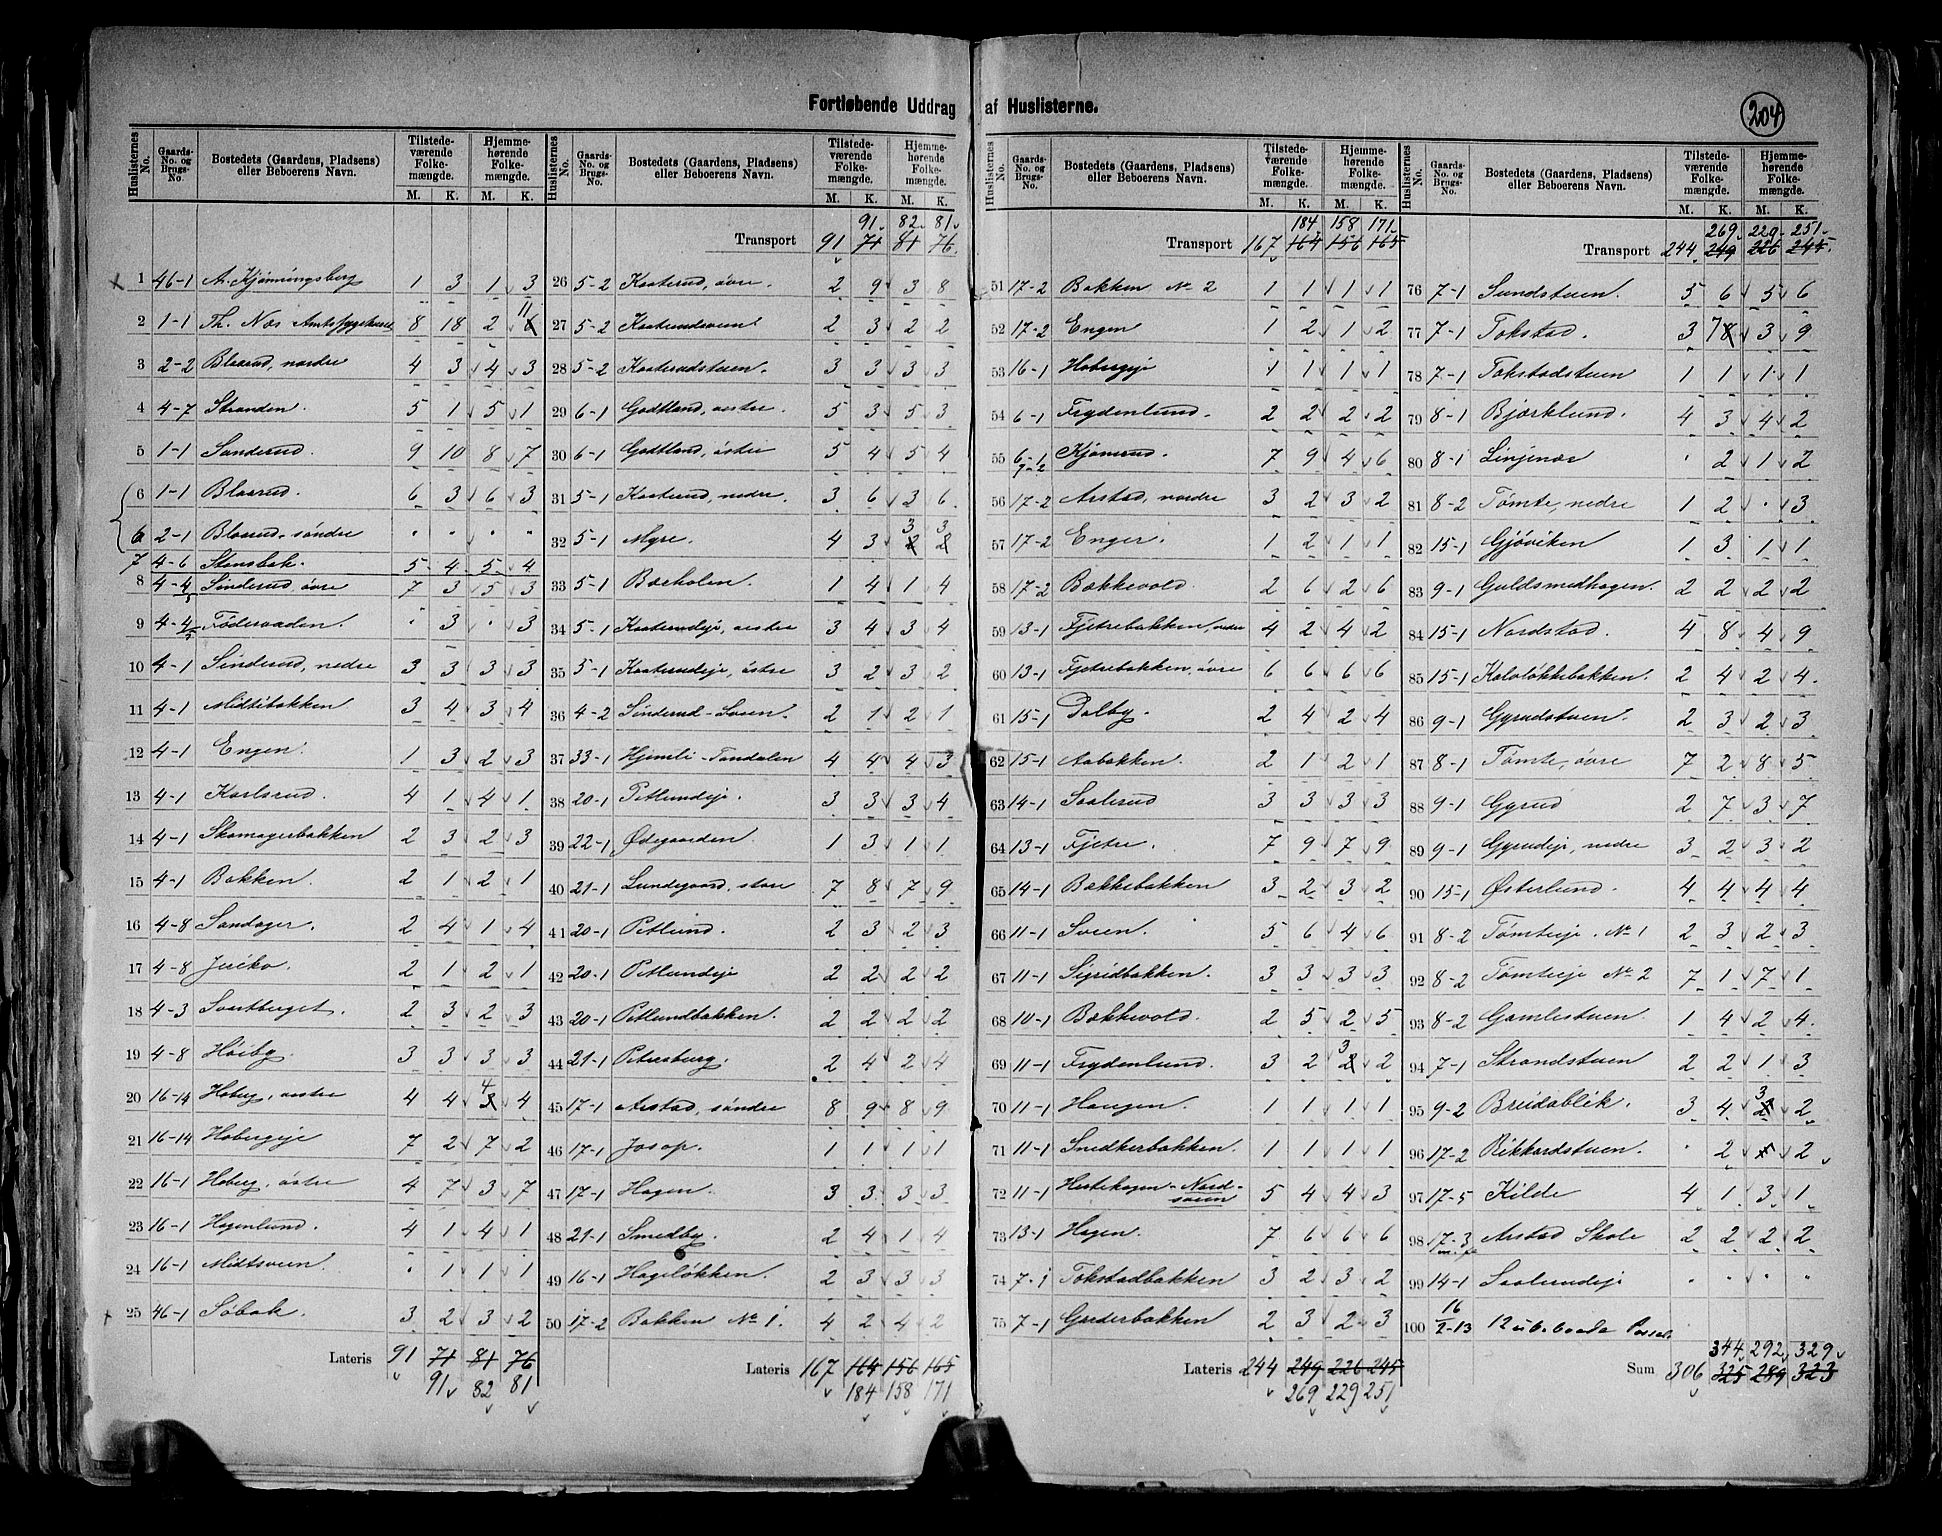 Fortløbende Uddrag af Huslisterne.
204
Huslisternes No. Gaards-No. og Brugs-No. Bostedets (Gaardens, Pladsens) eller Beboerens Navn. Tilstedeværende Folkemængde. M. K. Hjemmehørende Folkemængde. M. K.
1 46-1 A. Kjønningsberg 1 3 1 3
2 1-1 Th. Næs Amtssygehus 8 18 2 11 6
3 2-2 Blaarud, nordre 4 3 4 3
4 4-7 Stranden. 5 1 5 1
5 1-1 Sanderud. 9 10 8 7
6 1-1 Blaarud. 6 3 6 3
6 2-1 Blaarud, søndre " " " "
7 4-6 Stensbak. 5 4 5 4
8 4-4 Sinderud øvre 7 3 5 3
9 4-4/5 Föderaaden. " 3 " 3
10 4-1 Sinderud, nedre 3 3 3 3
11 4-1 Midtibakken 3 4 3 4
12 4-1 Engen. 1 3 2 3
13 4-1 Karlsrud. 4 1 4 1
14 4-1 Skomagerbakken 2 3 2 3
15 4-1 Bakken. 2 1 2 1
16 4-8 Sandager. 2 4 1 4
17 4-8 Jeriko. 2 1 2 1
18 4-3 Svartberget. 2 3 2 3
19 4-8 Höiby. 3 3 3 3
20 16-14 Hoberg, vestre 4 4 4 3 4
21 16-14 Hobergeje 7 2 7 2
22 16-1 Hoberg, östre 4 7 3 7
23 16-1 Hagenlund. 4 1 4 1
24 16-1 Midtsveen. " 1 1 1
25 46-1 Söbak. 3 2 3 2
Lateris 91 71 81 76
91 82 81
Huslisternes No. Gaards-No. og Brugs-No. Bostedets (Gaardens, Pladsens) eller Beboerens Navn. Tilstedeværende Folkemængde. M. K. Hjemmehørende Folkemængde. M. K.
91 82 81
Transport 91 71 81 76
26 5-2 Kaaterud, øvre. 2 9 3 8
27 5-2 Kaaterudsveen 2 3 2 2
28 5-2 Kaaterudstuen. 3 3 3 3
29 6-1 Godtland, vestre. 5 3 5 3
30 6-1 Godtland, östre 5 4 5 4
31 5-1 Kaaterud, nedre. 3 6 3 6
32 5-1 Myre. 4 3 3 2 3 2
33 5-1 Bækolen. 1 4 1 4
34 5-1 Kaaterudeje, vestre 3 4 3 4
35 5-1 Kaaterudeje, östre 3 2 3 2
36 4-2 Sinderud-Sveen. 2 1 2 1
37 33-1 Hjemli-Tandalen 4 4 4 3
38 20-1 Petlundeje. 3 3 3 4
39 22-1 Ødegaarden 1 3 1 1
40 21-1 Lundgaard, store 7 8 7 9
41 20-1 Petlund. 2 3 2 3
42 20-1 Petlundeje 2 2 2 2
43 20-1 Petlundbakken. 2 2 2 2
44 21-1 Petersburg. 2 4 2 4
45 17-1 Arstad, søndre 8 9 8 9
46 17-1 Josop. 1 1 1 1
47 17-1 Hagen. 3 3 3 3
48 21-1 Smedby. 2 4 1 4
49 16-1 Hageløkken. 2 3 3 3
50 17-2 Bakken No 1. 4 2 4 2
Lateris 167 164 156 165
184 158 171
Huslisternes No. Gaards-No. og Brugs-No. Bostedets (Gaardens, Pladsens) eller Beboerens Navn. Tilstedeværende Folkemængde. M. K. Hjemmehørende Folkemængde. M. K.
184 158 171
Transport 167 164 156 165
51 17-2 Bakken No 2 1 1 1 1
52 17-2 Engen 1 2 1 2
53 16-1 Hobergeje 1 1 1 1
54 6-1 Frydenlund. 2 2 2 2
55 6-1 7-2 Kjönerud. 7 9 4 6
56 17-2 Arstad, nordre 3 2 3 2
57 17-2 Enger. 1 2 1 1
58 17-2 Bakkevold. 2 6 2 6
59 13-1 Fjetrebakken, nedre 4 2 4 2
60 13-1 Fjetrebakken, øvre 6 6 6 6
61 15-1 Dalby. 2 4 2 4
62 15-1 Aabakken. 2 1 2 1
63 14-1 Saalerud 3 3 3 3
64 13-1 Fjetre. 7 9 7 9
65 14-1 Bakkebakken 3 2 3 2
66 11-1 Sveen. 5 6 4 6
67 11-1 Sigridbakken. 3 3 3 3
68 10-1 Bakkevold. 2 5 2 5
69 11-1 Frydenlund. 3 2 3 2 2
70 11-1 Haugen. 1 1 1 1
71 11-1 Snedkerbakken. 1 1 1 1
72 11-1 Hestehagen-Nordsveen 5 4 4 3
73 13-1 Hagen. 7 6 6 6
74 7-1 Tokstadbakken 3 2 3 2
75 7-1 Gjiderbakken 2 3 2 3
Lateris 244 249 226 245
269 229 251
Huslisternes No. Gaards-No. og Brugs-No. Bostedets (Gaardens, Pladsens) eller Beboerens Navn. Tilstedeværende Folkemængde. M. K. Hjemmehørende Folkemængde. M. K.
269 229 251
Transport 244 249 226 245
76 7-1 Sundstuen. 5 6 5 6
77 7-1 Tokstad. 3 7 8 3 9
78 7-1 Tokstadstuen 1 1 1 1
79 8-1 Bjørklund. 4 3 4 2
80 8-1 Linjenæs " 2 1 2
81 8-2 Tømte, nedre 1 2 " 3
82 15-1 Gjøviken 1 3 1 1
83 9-1 Guldsmedhagen 2 2 2 2
84 15-1 Nordstad. 4 8 4 9
85 15-1 Kalvløkkebakken. 2 4 2 4
86 9-1 Gyrudstuen. 2 3 2 3
87 8-1 Tømte, øvre 7 2 8 5
88 9-1 Gyrud 2 7 3 7
89 9-1 Gyrudeje, nedre 3 2 3 2
90 15-1 Østerlund. 4 4 4 4
91 8-2 Tømteeje. No 1 2 3 2 3
92 8-2 Tømteeje No 2 7 1 7 1
93 8-2 Gamlestuen. 1 4 2 4
94 7-1 Strandstuen 2 2 1 3
95 9-2 Breidablik. 3 4 3 2 2
96 17-2 Rikkardstuen. " 2 2
97 17-5 Kilde 4 1 3 1
98 17-3 Arstad Skole 2 2 2 2
99 14-1 Saalerudeje " " " "
100 16/2-13 12 ub.boede
344 292 329
Sum 306 325 289 323